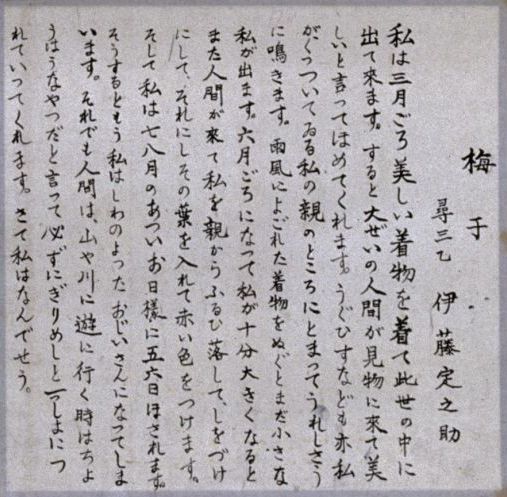 梅干
尋三乙 伊藤定之助
私は三月ごろ美しい着物を着て此世の中に
出て來ます。すると大ぜいの人間が見物に來て美
しいと言ってほめてくれます。うぐひすなども亦私
がくっついてゐる私の親のところにとまってうれしさう
に鳴きます。雨風によごれた着物をぬぐとまだ小さな
私が出ます。六月ごろになって私が十分大きくなると
また人間が來て私を親からふるひ落して、しをづけ
にして、それにしその葉を入れて赤い色をつけます。
そして私は七八月のあついお日様に五六日ほされます。
そうするともう私はしわのよったおじいさんになってしま
います。それでも人間は、山や川に遊に行く時はちょ
うはうなやつだと言って必ずにぎりめしと一っしょにつ
れていってくれます。さて私はなんでせう。